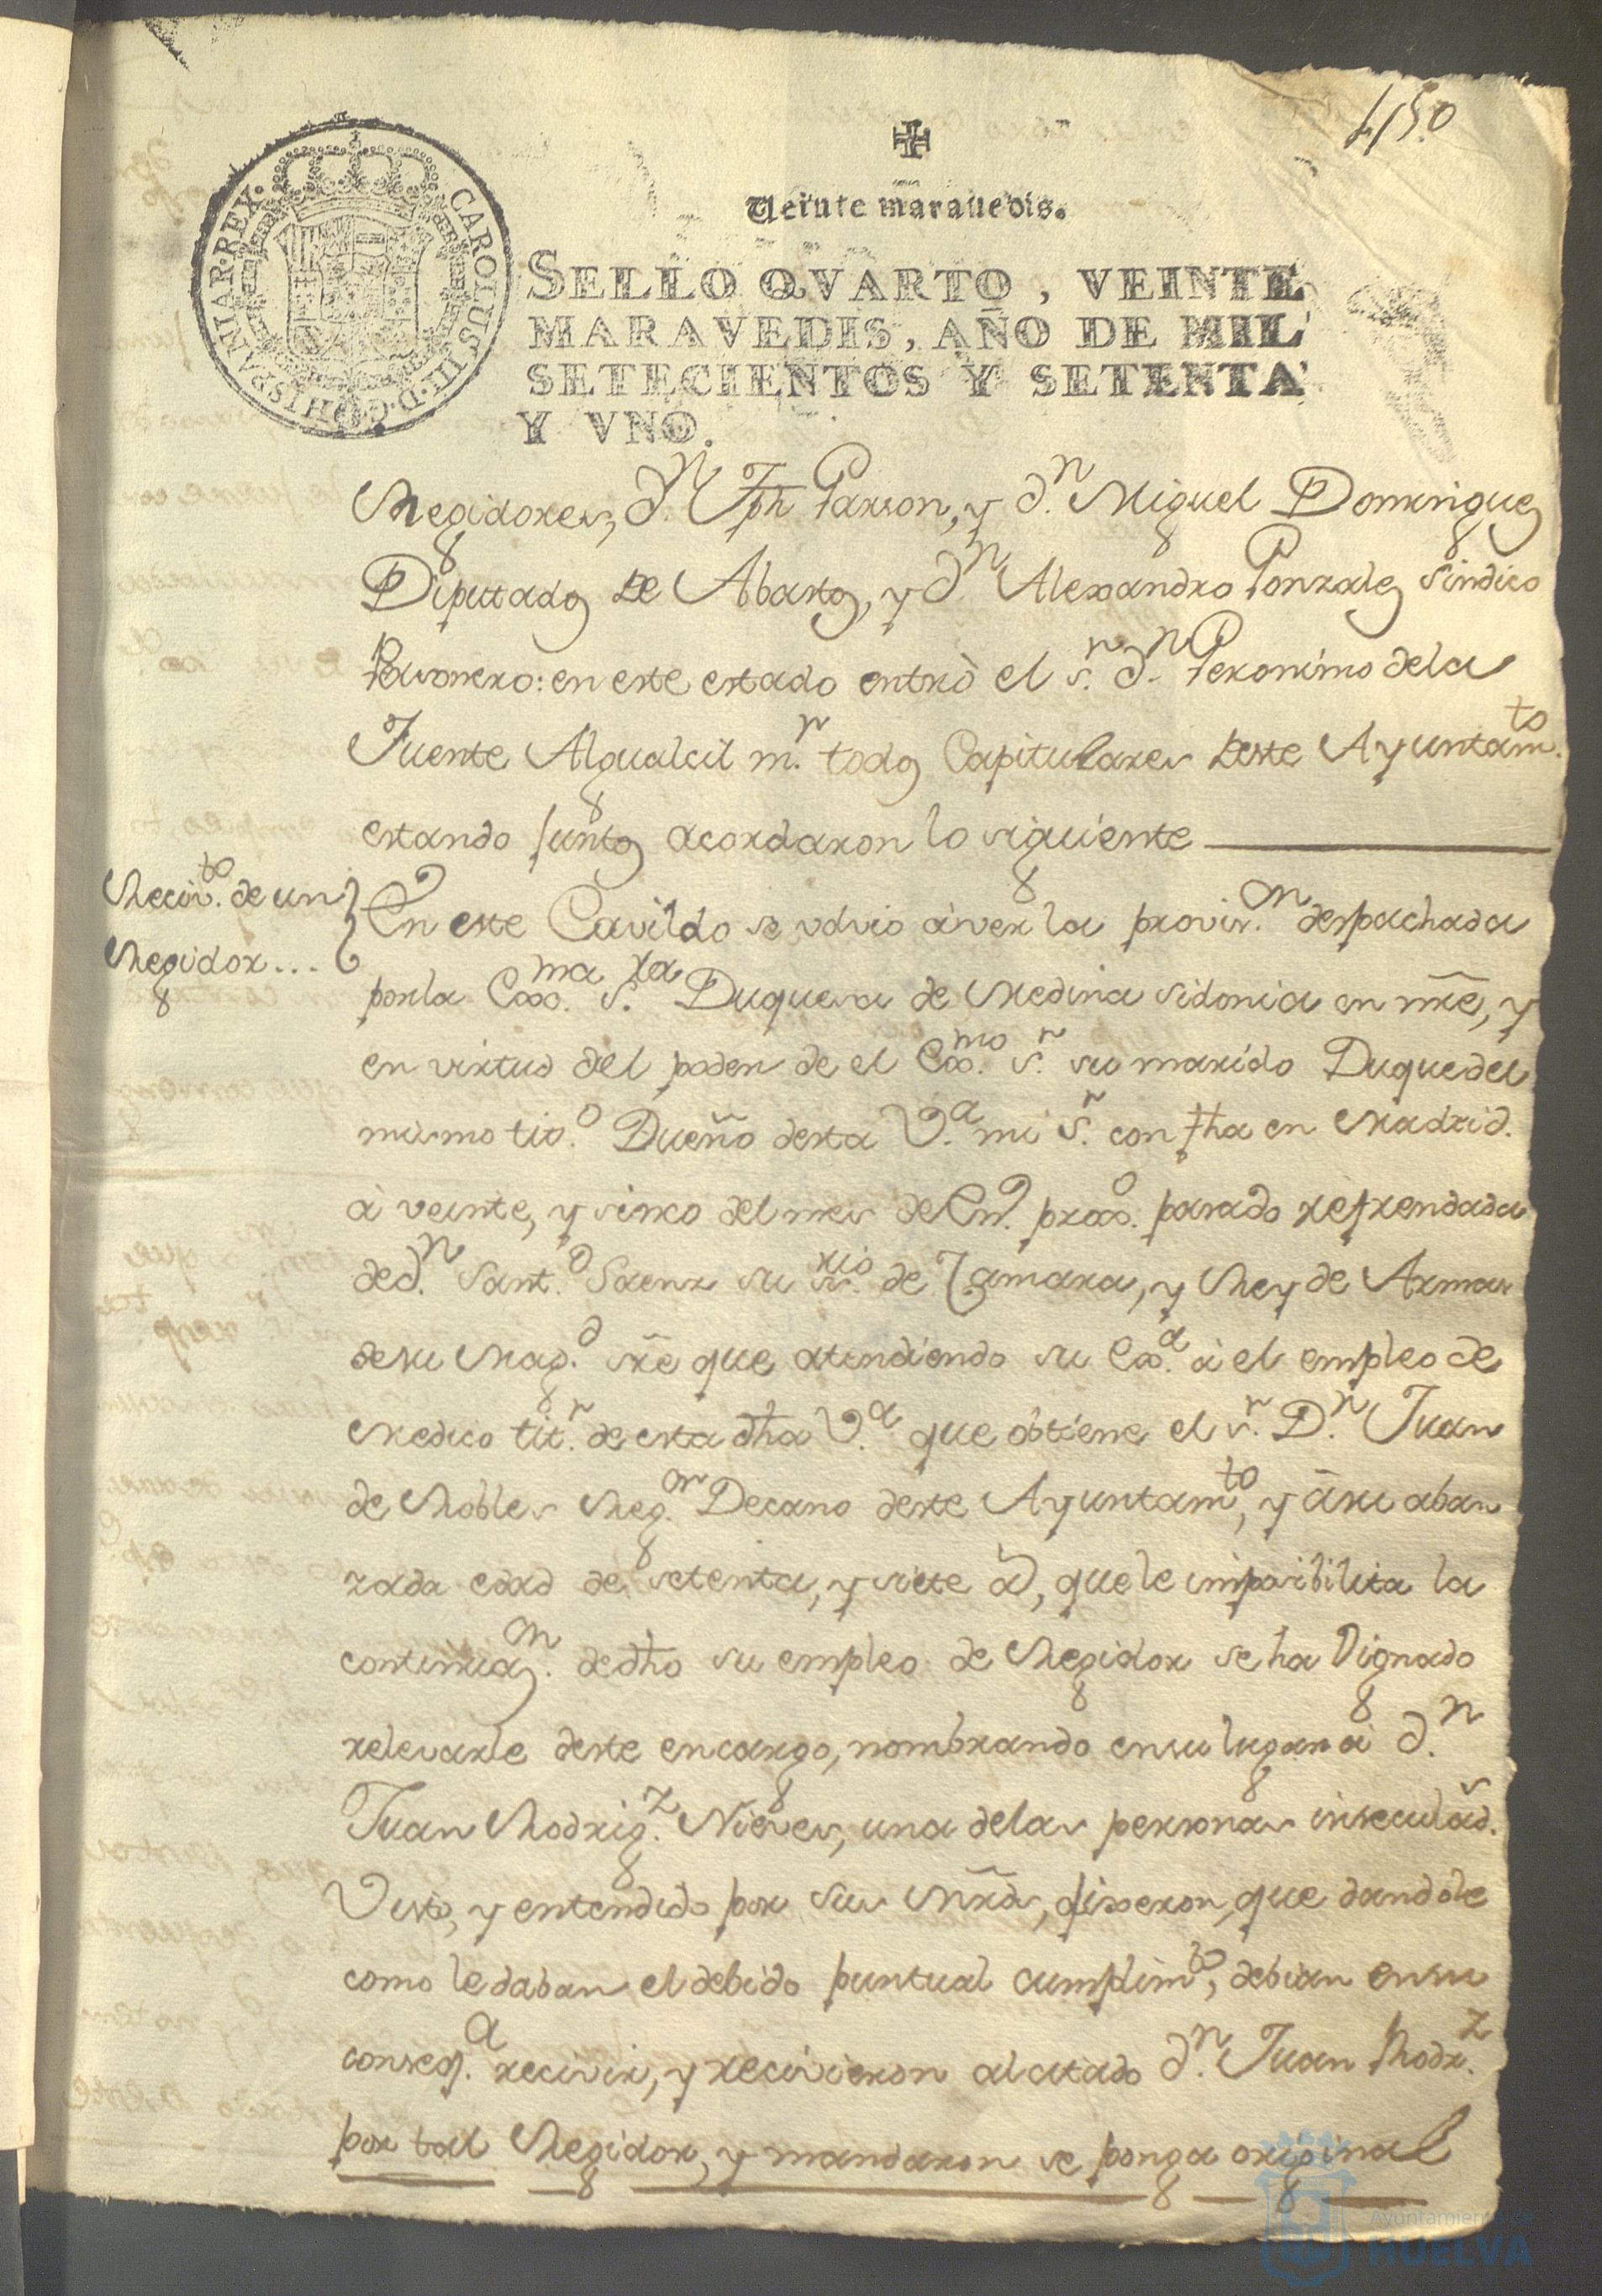 450
Veinte maravedis.
CAROLUS III D.G. HISPANIAR. REX.
SELLO QVARTO, VEINTE
MARAVEDIS, AÑO DE MIL
SETECIENTOS Y SETENTA
Y VNO.
Regidores, Dn. Jph Garson, y Dn. Miguel Dominguez
Diputados de Abastos, y Dn. Alexandro Gonzales Sindico
Personero: en este estado entrò el sr. Dn. Geronimo dela
Fuente Algualcil mr. todos Capitulares deste Ayuntamto.
estando juntos acordaron lo siguiente
Recivto. de un
Regidor...
En este Cavildo se volvio à ver la provisn. despachada
por la Exma. sra. Duquesa de Medina Sidonia en nre, y
en virtud del poder de el Exmo. sr. su marido Duque del
mismo titº. Dueño desta Vª. mi sr. con fha en Madrid.
à veinte, y sinco del mes de Enº. proxº. pasado refrendada
de Dn. Santº. Saenz su srio. de Camara, y Rey de Armas
de su Magd. sre que atendiendo su Exª. à el empleo de
Medico titr. de esta dha Vª. que obtiene el sr. Dn. Juan
de Robles Regor. Decano deste Ayuntamto, y à su aban
zada edad de setenta, y siete as, que le imposibilita la
continuazn. de dho su empleo de Regidor se ha Dignado
relevarle deste encargo, nombrando en su lugar à Dn.
Juan Rodrigz. Nieves, una delas personas inseculads.
Visto, y entendido por sus mrds, dixeron que dandole
como le daban el debido puntual cumplimto, debian en su
conseqª. recivir, y recivieron al citado Dn. Juan Rodrz.
por tal Regidor, y mandaron se ponga original
Ayuntamiento de
HUELVA